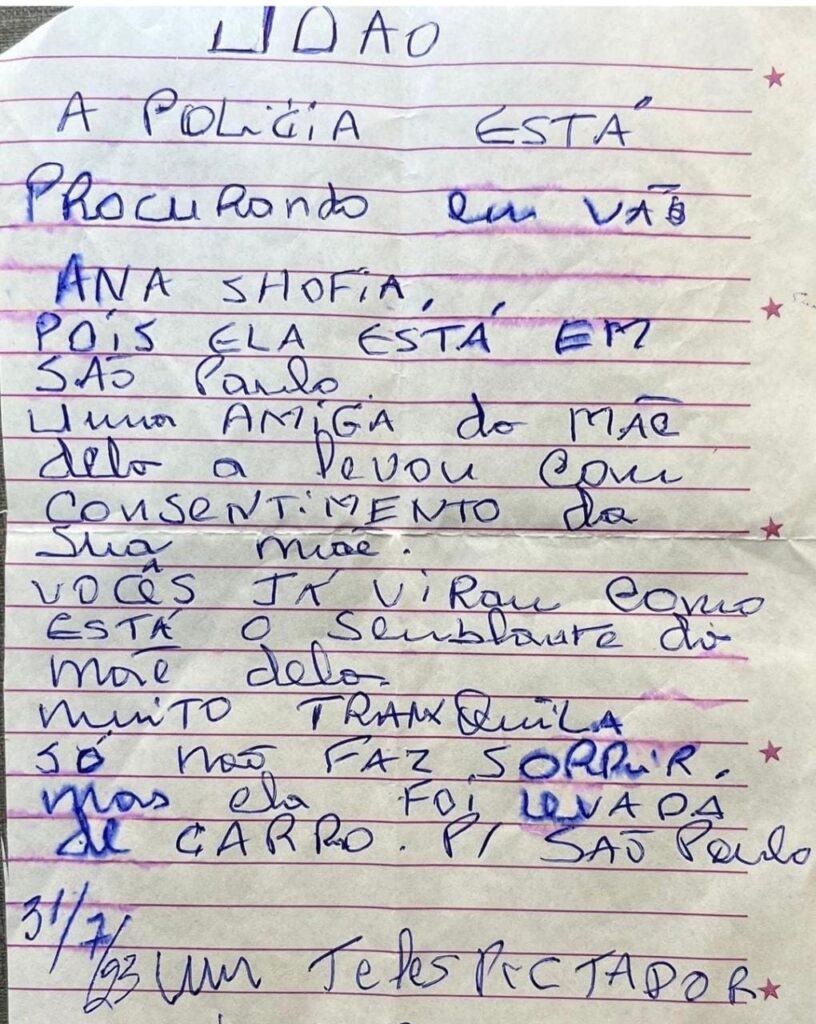 LIDÃO
A POLICIA ESTÁ
PROCURando em VÃO
ANA SHOFIA,
POIS ELA ESTÁ EM
SÃO Paulo.
Uma AMIGA da MÃE
dela a levou com
CONSENTIMENTO da
Sua mãe.
VOCÊS JÁ VIRam como
ESTÁ O Semblante da
mãe dela.
muito TRANXQuiLA
SÓ não FAZ SORRIR.
mas ela FOI LEVADA
de CARRO. P/ SÃO Paulo
31/7/23 um TelespicTADOR